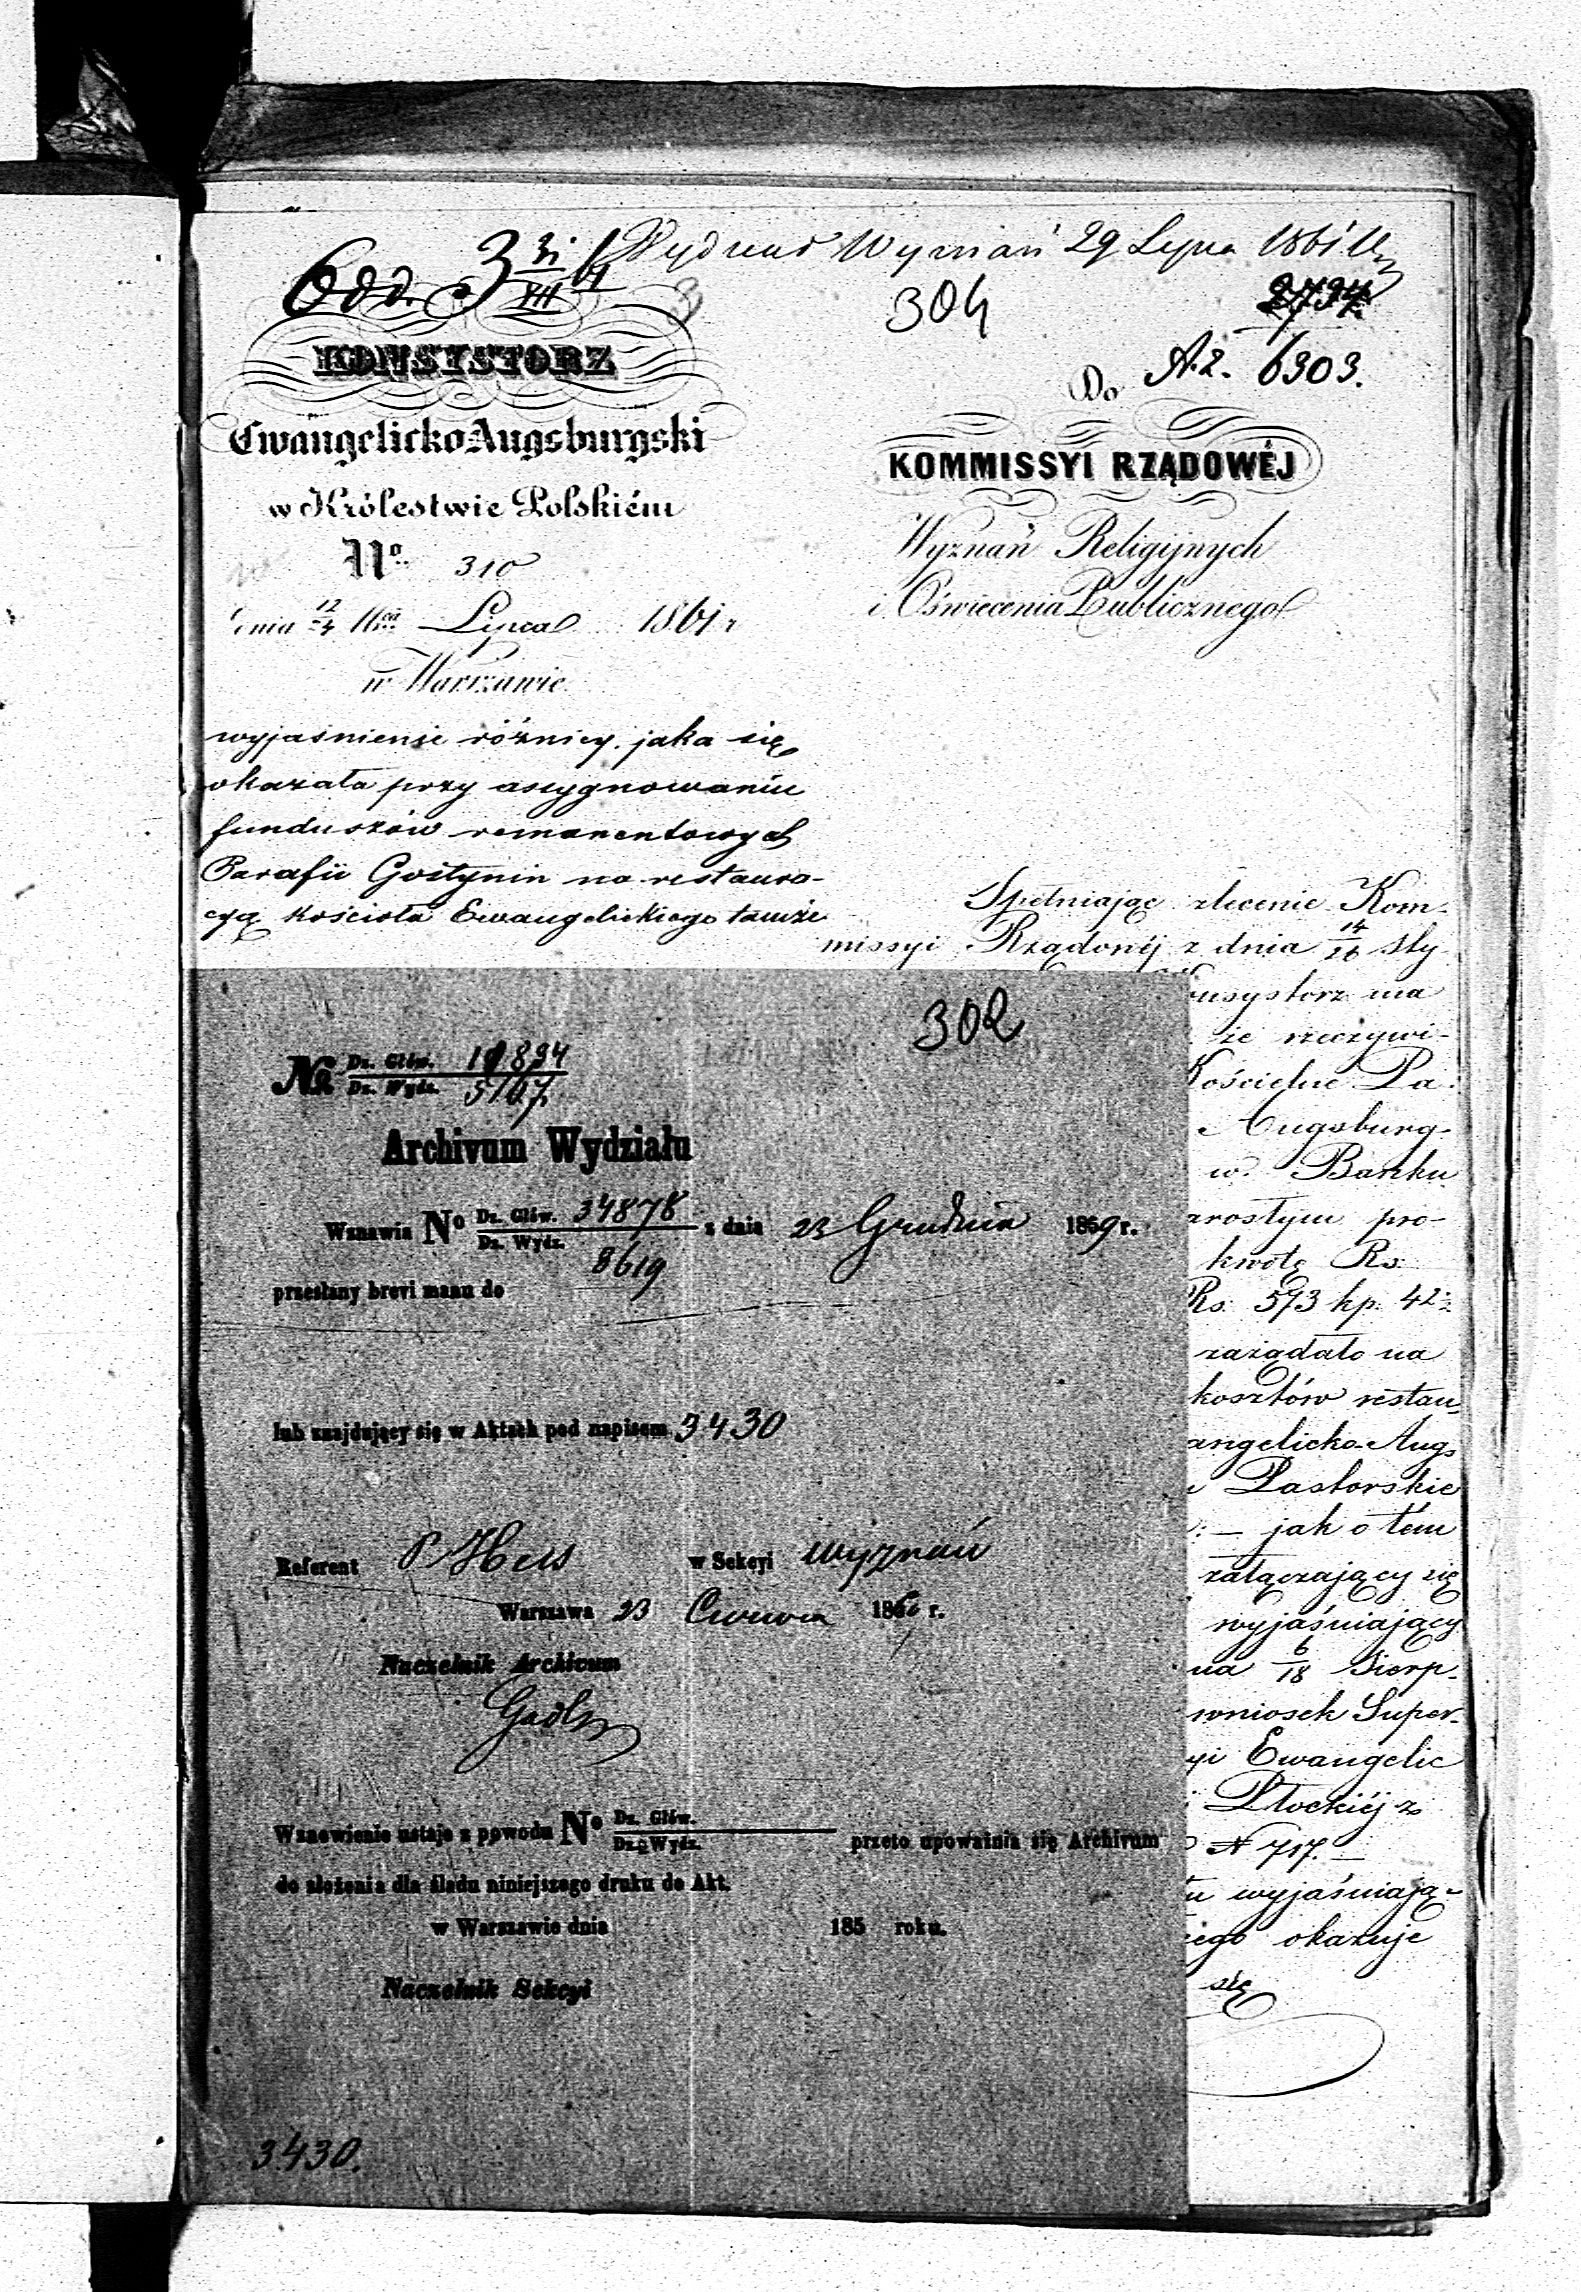 Odd. 3 31/VII 61
Wydział Wyznań 29 Lipca 1861
304
2734
A.2. 6303.
KONSYSTORZ
Ewangelicko Augsburgski
w Królestwie Polskiém
No. 310
dnia 12/24 Mca Lipca 1861 r
w Warszawie
Do
KOMMISSYI RZĄDOWÉJ
Wyznań Religijnych
i Oświecenia Publicznego
wyjaśnienie różnicy jaka się
okazała przy assygnowaniu
funduszów remanentowych
Parafii Gostynin na restaura-
cyą kościoła Ewangelickiego tamże
Spełniając zlecenie Kom-
missyi Rządowéj z dnia 14/26 Sty
onsystorz ma
że rzeczywi-
Kościelne Pa-
Augsburg-
w Banku
arosłym pro-
kwotę Rs:
Rs: 593 kp. 42
zażądało na
kosztów restau-
angelicko-Augs
Pastorskie
jak o tém
załączający się
wyjaśniający
na 6/18 Sierp-
wniosek Super-
yi Ewangelic
Płockiéj z
N 717. —
u wyjaśniają-
iego okazuje
się
302
No Dz. Głów. 10834
Dz. Wydz. 5107
Archivum Wydziału
Wznawia No Dz. Głów. 34878 z dnia 23 Grudnia 1859 r.
Dz. Wydz. 8619
przesłany brevi manu do
lub znajdujący się w Aktach pod napisem 3430
Referent P Hess w Sekcyi Wyznań
Warszawa 23 Czerwca 186 r.
Naczelnik Archivum
Wznowienie ustaje z powodu No Dz. Głów. przeto upoważnia się Archivum
Dz. Wydz.
do złożenia dla śladu niniejszego druku do Akt.
w Warszawie dnia 185 roku.
Naczelnik Sekcyi
3430.